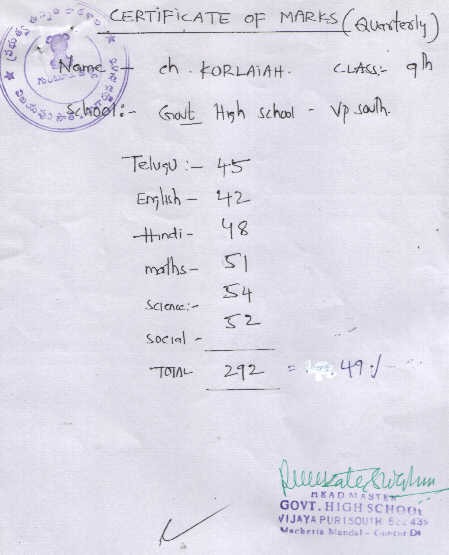 CERTIFICATE OF MARKS (Quarterly)
Name - ch. KORLAIAH. CLASS:- 9th
School:- Govt High school - Vp south.
Telugu :- 45
English - 42
Hindi - 48
maths - 51
science:- 54
social - 52
TOTAL 292 = 49 ./-
HEAD MASTER
GOVT. HIGH SCHOOL
VIJAYA PURI SOUTH 522 439
Macherla Mandal - Guntur Dt